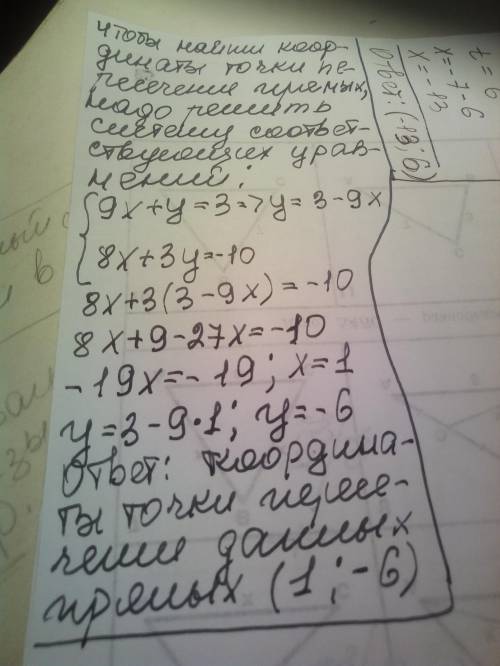 чтобы найти коор-
динаты точки пе-
ресечения прямых,
надо решить
систему соответ-
ствующих урав-
нений:
9x+y=3=>y=3-9x
8x+3y=-10
8x+3(3-9x)=-10
8x+9-27x=-10
-19x=-19; x=1
y=3-9·1; y=-6
Ответ: координа-
ты точки пересе-
чении данных
прямых (1;-6)
x=-7-6
x=-13